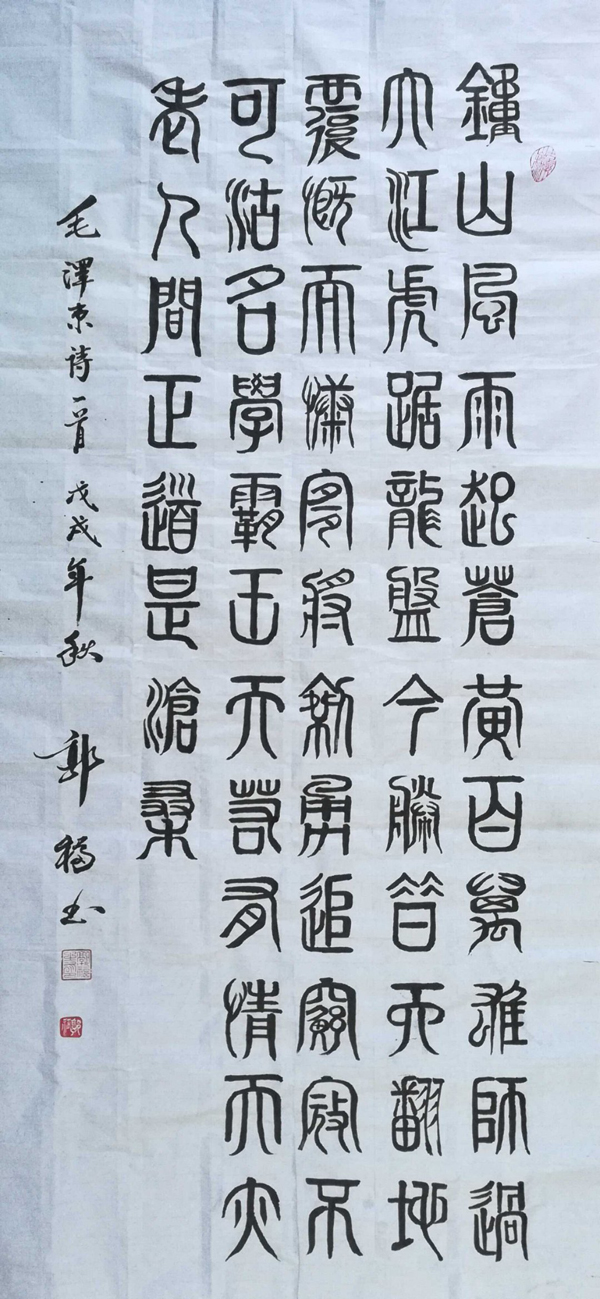 鐘山風雨起蒼黃百萬雄師過
大江虎踞龍盤今勝昔天翻地
覆慨而慷宜將剩勇追窮寇不
可沽名學霸王天若有情天亦
老人間正道是滄桑
毛澤東诗一首 戊戌年秋 郭书